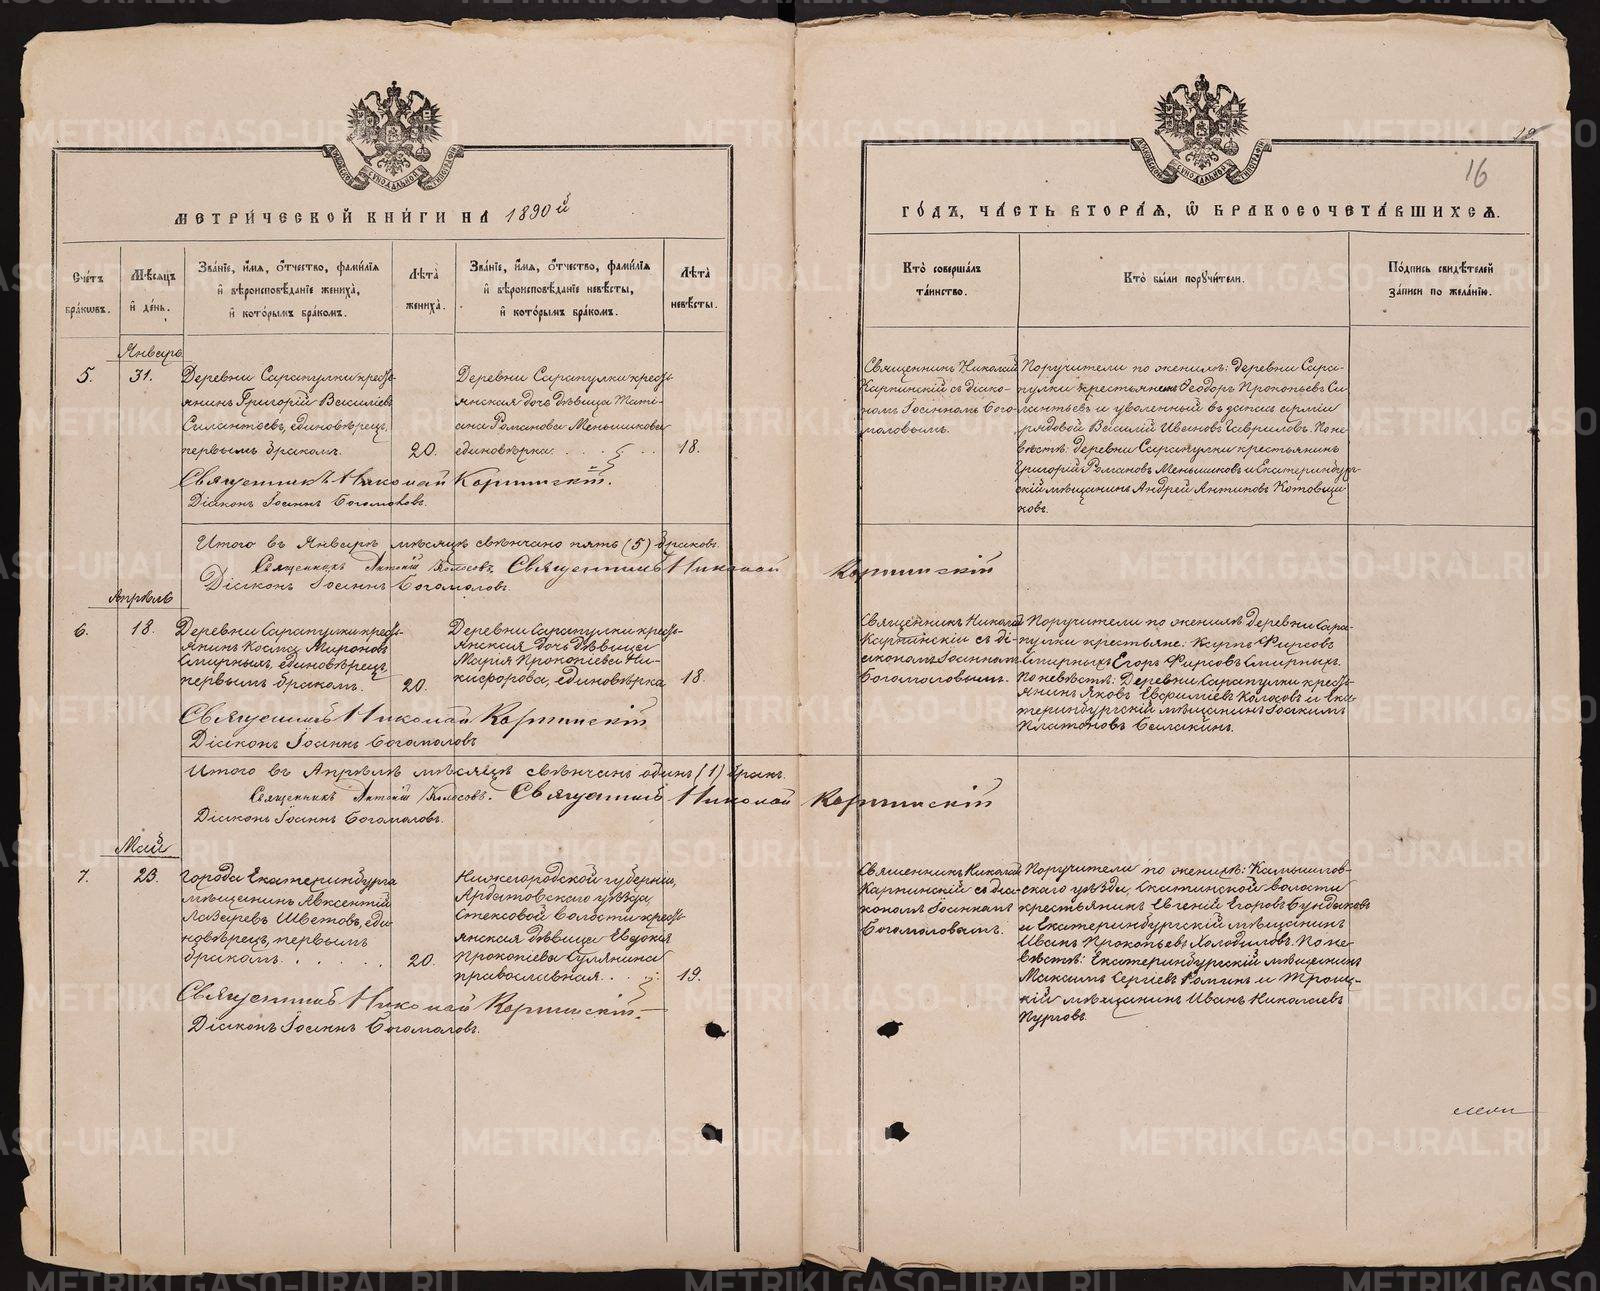 МЕТРИ́ЧЕСКОЙ КНИ́ГИ НА 1890й
Сче́тъ бра́кωвъ.
Мѣсяцъ и де́нь.
Зва́нїе, и́мя, ѻ́тчество, фами́лїя и вѣроисповѣданїе жениха̀, и кото́рымъ бра́комъ.
Лѣта̀ жениха̀.
Зва́нїе, и́мя, ѻ́тчество, фами́лїя и вѣроисповѣданїе невѣсты, и кото́рымъ бра́комъ.
Лѣта̀ невѣсты.
Январь
5.
31.
Деревни Сарапулки кресть-
янинъ Григорій Василіевъ
Силантьевъ, единовѣрецъ,
первымъ бракомъ.
20.
Деревни Сарапулки кресть-
янская дочь дѣвица Тати-
ана Романова Меньшикова
единовѣрка
18.
Священникъ Николай Карпинскій.
Діаконъ Іоаннъ Богомоловъ.
Итого въ Январѣ мѣсяцѣ свѣнчано пять (5) браковъ.
Священникъ Антоній Колосовъ. Священникъ Николай Карпинскій
Діаконъ Іоаннъ Богомоловъ.
Апрѣль
6.
18.
Деревни Сарапулки кресть-
янинъ Косма Мироновъ
Смирныхъ, единовѣрецъ,
первымъ бракомъ.
20.
Деревни Сарапулки кресть-
янская дочь дѣвица
Марія Прокопіева Ни-
кифорова, единовѣрка
18.
Священникъ Николай Карпинскій
Діаконъ Іоаннъ Богомоловъ
Итого въ Апрѣлѣ мѣсяцѣ свѣнчанъ одинъ (1) бракъ.
Священникъ Антоній Колосовъ. Священникъ Николай Карпинскій
Діаконъ Іоаннъ Богомоловъ.
Май
7.
23.
Города Екатеринбурга
мѣщанинъ Авксентій
Лазаревъ Швѣтовъ, еди-
новѣрецъ, первымъ
бракомъ.
20.
Нижегородской губерніи,
Ардатовскаго уѣзда,
Стексовой волости кресть-
янская дѣвица Евдокія
Прокопіева Сулянина
православная.
19.
Священникъ Николай Карпинскій.
Діаконъ Іоаннъ Богомоловъ.
16
ГО́ДЪ, ЧА́СТЬ ВТОРА́Я, Ѽ БРАКОСОЧЕТА́ВШИХСЯ.
Кто̀ соверша́лъ та́инство.
Кто̀ бы́ли поручи́тели.
По́дпись свидѣтелей за́писи по жела́нїю.
Священникъ Николай
Карпинскій съ діако-
номъ Іоанномъ Бого-
моловымъ.
Поручители по женихѣ: деревни Сара-
пулки крестьянинъ Ѳеодоръ Прокопьевъ Си-
лантьевъ и уволенный въ запасъ арміи
рядовой Василій Ивановъ Гавриловъ. По не-
вѣстѣ: деревни Сарапулки крестьянинъ
Григорій Романовъ Меньшиковъ и Екатеринбург-
скій мѣщанинъ Андрей Антиповъ Котовщи-
ковъ.
Священникъ Николай
Карпинскій съ ді-
акономъ Іоанномъ
Богомоловымъ.
Поручители по женихѣ деревни Сара-
пулки крестьяне: Карпъ Фирсовъ
Смирныхъ Егоръ Фирсовъ Смирныхъ.
По невѣстѣ: Деревни Сарапулки кресть-
янинъ Яковъ Евфиміевъ Колосовъ и Ека-
теринбургскій мѣщанинъ Іоакимъ
Платоновъ Белякинъ.
Священникъ Николай
Карпинскій съ діа-
кономъ Іоанномъ
Богомоловымъ.
Поручители по женихѣ: Камышлов-
скаго уѣзда, Скатинской волости
крестьянинъ Евгеній Егоровъ Бундыковъ
и Екатеринбургскій мѣщанинъ
Иванъ Прокопьевъ Холодиловъ. По не-
вѣстѣ: Екатеринбургскій мѣщанинъ
Максимъ Сергіевъ Фоминъ и Троиц-
кій мѣщанинъ Иванъ Николаевъ
Пурговъ.
METRIKI.GASO-URAL.RU